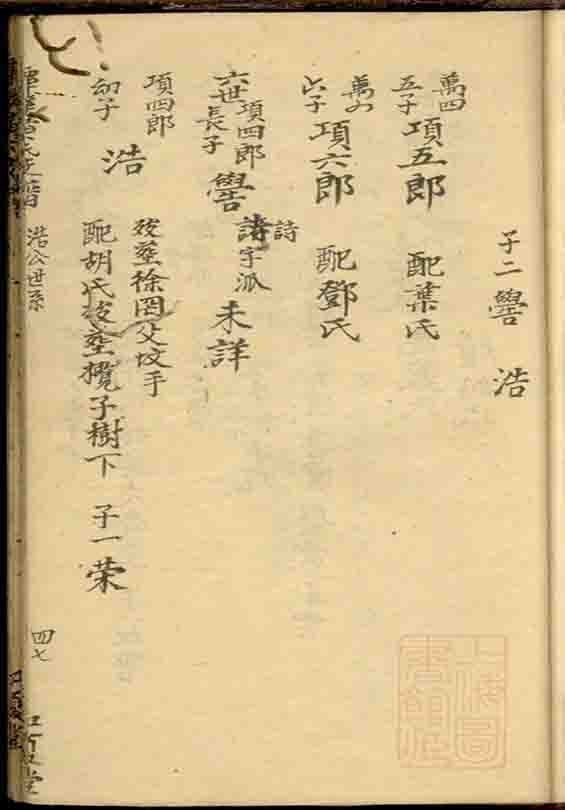 子二 㽦 浩
萬四
五子 項五郎 配葉氏
萬四
六子 項六郎 配鄧氏
六世項四郎
長子 㽦 詩
詩字派 未詳
項四郎
幼子 浩
歿塟徐罔父坟手
配胡氏歿塟欖子樹下 子一 荣
浩公世系
四七
上海圖書館藏